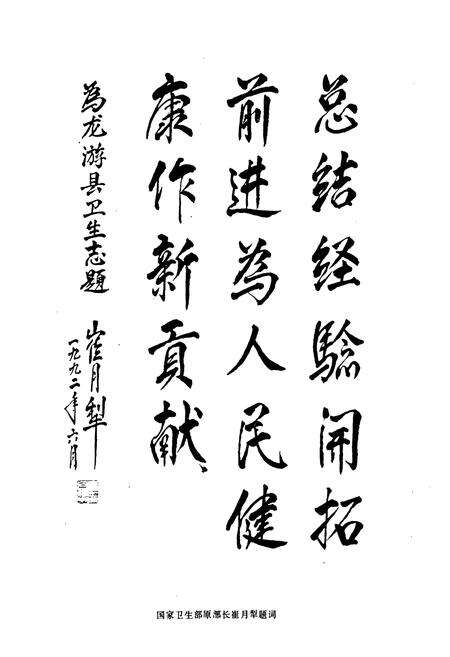 总结经验开拓
前进为人民健
康作新贡献
为龙游县卫生志题
崔月犁
一九九二年六月
国家卫生部原部长崔月犁题词